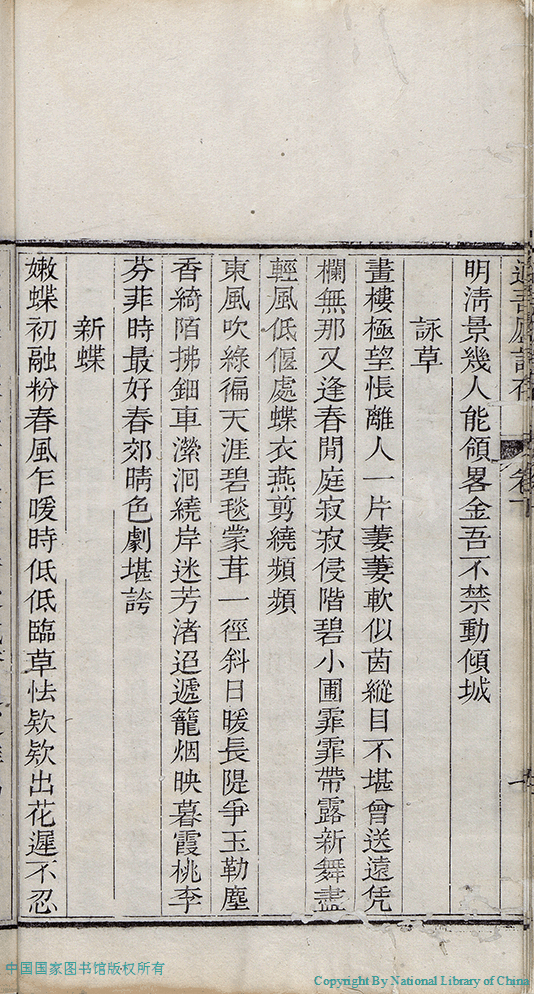 明淸景幾人能領畧金吾不禁動傾城
詠草
畫樓極望悵離人一片萋萋軟似茵縱目不堪曾送遠凭
欄無那又逢春閒庭寂寂侵階碧小圃霏霏帶露新舞盡
輕風低偃處蝶衣燕剪繞頻頻
東風吹綠徧天涯碧毯蒙茸一徑斜日暖長隄爭玉勒塵
香綺陌拂鈿車瀠洄繞岸迷芳渚迢遞籠烟映暮霞桃李
芬菲時最好春郊晴色劇堪誇
新蝶
嫩蝶初融粉春風乍暖時低低臨草怯欵欵出花遲不忍
中国国家图书馆版权所有
Copyright By National Library of China